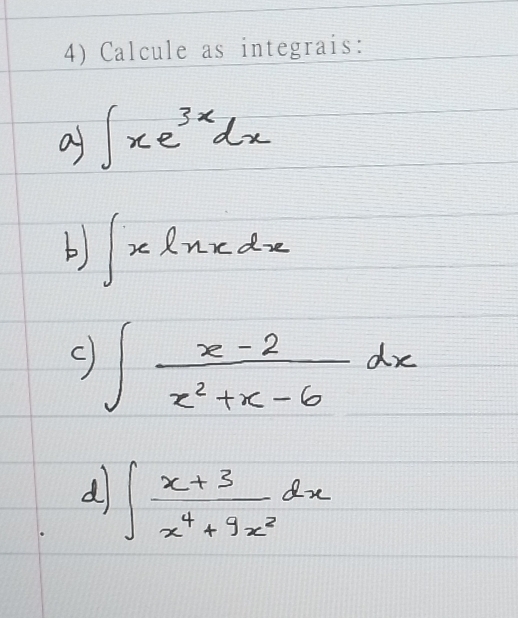 4) Calcule as integrais:
a) ∫ xe^{3x} dx
b) ∫ x lnx dx
c) ∫ (x - 2)/(x² + x - 6) dx
d) ∫ (x + 3)/(x⁴ + 9x²) dx